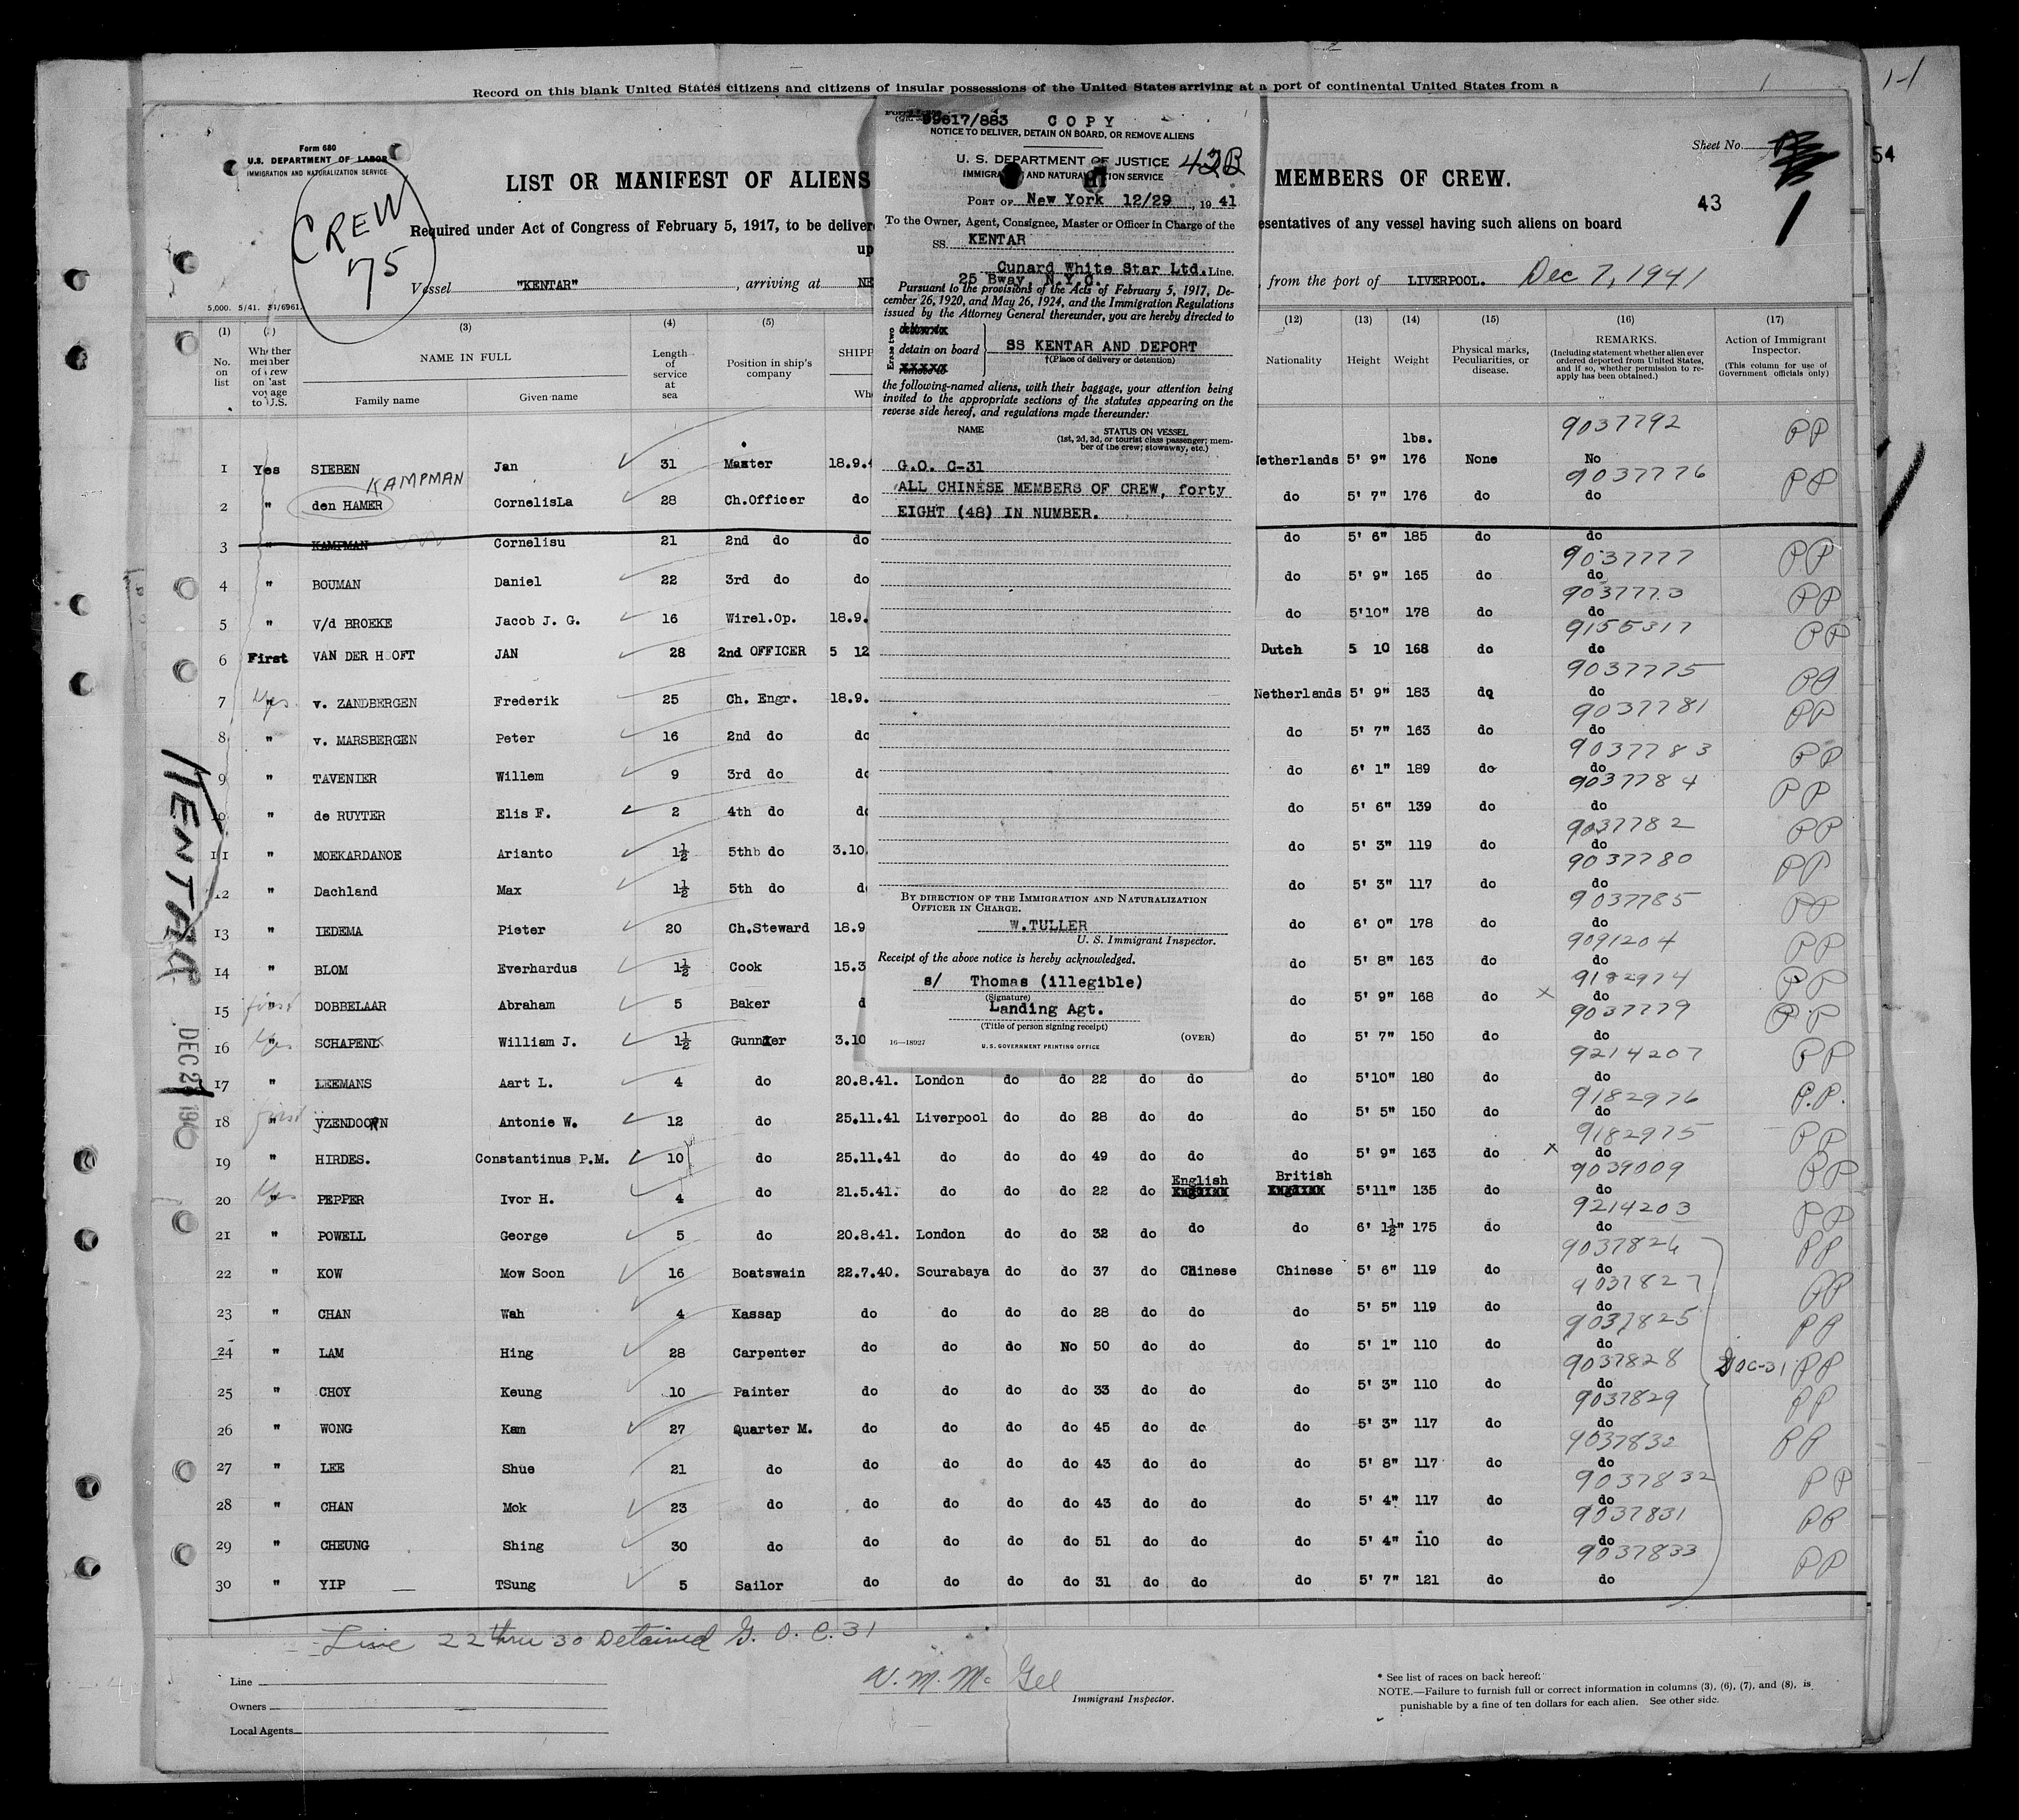 Record on this blank United States citizens and citizens of insular possessions of the United States arriving at a port of continental United States from a
1-1
Form 680
U.S. DEPARTMENT OF LABOR
IMMIGRATION AND NATURALIZATION SERVICE
Sheet No.
1
54
43
CREW
75
LIST OR MANIFEST OF ALIENS
MEMBERS OF CREW.
Required under Act of Congress of February 5, 1917, to be deliver
esentatives of any vessel having such aliens on board
up
Vessel "KENTAR", arriving at NE
, from the port of LIVERPOOL. Dec 7, 1941
5,000. 5/41. 34/6961.
99617/883 COPY
NOTICE TO DELIVER, DETAIN ON BOARD, OR REMOVE ALIENS
U. S. DEPARTMENT OF JUSTICE
IMMIGRATION AND NATURALIZATION SERVICE
PORT OF New York 12/29, 1941
To the Owner, Agent, Consignee, Master or Officer in Charge of the
SS KENTAR
Cunard White Star Ltd. Line.
25 Bway, N.Y.C.
Pursuant to the provisions of the Acts of February 5, 1917, De-
cember 26, 1920, and May 26, 1924, and the Immigration Regulations
issued by the Attorney General thereunder, you are hereby directed to
Erase two
detain on board
SS KENTAR AND DEPORT
†(Place of delivery or detention)
the following-named aliens, with their baggage, your attention being
invited to the appropriate sections of the statutes appearing on the
reverse side hereof, and regulations made thereunder:
NAME STATUS ON VESSEL
(1st, 2d, 3d, or tourist class passenger; mem-
ber of the crew; stowaway, etc.)
G.O. C-31
ALL CHINESE MEMBERS OF CREW, forty
EIGHT (48) IN NUMBER.
BY DIRECTION OF THE IMMIGRATION AND NATURALIZATION
OFFICER IN CHARGE.
W.TULLER
U. S. Immigrant Inspector.
Receipt of the above notice is hereby acknowledged.
s/ Thomas (illegible)
(Signature)
Landing Agt.
(Title of person signing receipt)
(OVER)
16—18927
U.S. GOVERNMENT PRINTING OFFICE
(1) (3) (4) (5) (12) (13) (14) (15) (16) (17)
No. on list
Whether member of crew on last voyage to U.S.
NAME IN FULL
Family name Given name
Length of service at sea
Position in ship's company
SHIPP
Whe
Nationality Height Weight
Physical marks, Peculiarities, or disease.
REMARKS.
(Including statement whether alien ever ordered deported from United States, and if so, whether permission to re-apply has been obtained.)
Action of Immigrant Inspector.
(This column for use of Government officials only)
lbs. 9037792 PP
1 Yes SIEBEN Jan 31 Master 18.9.4 Netherlands 5' 9" 176 None No
KAMPMAN 9037776 PP
2 " den HAMER CornelisLa 28 Ch.Officer do do 5' 7" 176 do do
3 " KAMPMAN Cornelisu 21 2nd do do do 5' 6" 185 do do
9037777 PP
4 " BOUMAN Daniel 22 3rd do do do 5' 9" 165 do do
9037773 PP
5 " V/d BROEKE Jacob J. G. 16 Wirel.Op. 18.9. do 5'10" 178 do do
9155317 PP
6 First VAN DER HOOFT JAN 28 2nd OFFICER 5 12 Dutch 5 10 168 do do
9037775 PP
7 Yes v. ZANDBERGEN Frederik 25 Ch. Engr. 18.9. Netherlands 5' 9" 183 do do
9037781 PP
8 " v. MARSBERGEN Peter 16 2nd do do do 5' 7" 163 do do
9037783 PP
9 " TAVENIER Willem 9 3rd do do do 6' 1" 189 do do
9037784 PP
10 " de RUYTER Elis F. 2 4th do do do 5' 6" 139 do do
9037782 PP
11 " MOEKARDANOE Arianto 1½ 5th do 3.10. do 5' 3" 119 do do
9037780 PP
12 " Dachland Max 1½ 5th do d do 5' 3" 117 do do
9037785 PP
13 " IEDEMA Pieter 20 Ch.Steward 18.9 do 6' 0" 178 do do
9091204 PP
14 " BLOM Everhardus 1½ Cook 15.3 do 5' 8" 163 do do
9182974 PP
15 first " DOBBELAAR Abraham 5 Baker d do 5' 9" 168 do x do
9037779 PP
16 Yes SCHAPENK William J. 1½ Gunner 3.10 do 5' 7" 150 do do
9214207 PP
17 " LEEMANS Aart L. 4 do 20.8.41. London do do 22 do do do 5'10" 180 do do
9182976 P.P.
18 first " YZENDOORN Antonie W. 12 do 25.11.41 Liverpool do do 28 do do do 5' 5" 150 do do
9182975 PP
19 " HIRDES. Constantinus P.M. 10 do 25.11.41 do do do 49 do do do 5' 9" 163 do x do
English British 9039009 PP
20 Yes PEPPER Ivor H. 4 do 21.5.41. do do do 22 do 5'11" 135 do do
9214203 PP
21 " POWELL George 5 do 20.8.41. London do do 32 do do do 6' 1½" 175 do do
9037826 PP
22 " KOW Mow Soon 16 Boatswain 22.7.40. Sourabaya do do 37 do Chinese Chinese 5' 6" 119 do do
9037827 PP
23 " CHAN Wah 4 Kassap do do do do 28 do do do 5' 5" 119 do do
9037825 PP
24 " LAM Hing 28 Carpenter do do do No 50 do do do 5' 1" 110 do do
9037828 GOC-31 PP
25 " CHOY Keung 10 Painter do do do do 33 do do do 5' 3" 110 do do
9037829 PP
26 " WONG Kam 27 Quarter M. do do do do 45 do do do 5' 3" 117 do do
9037830 PP
27 " LEE Shue 21 do do do do do 43 do do do 5' 8" 117 do do
9037832 PP
28 " CHAN Mok 23 do do do do do 43 do do do 5' 4" 117 do do
9037831 PP
29 " CHEUNG Shing 30 do do do do do 51 do do do 5' 4" 110 do do
9037833 PP
30 " YIP TSung 5 Sailor do do do do 31 do do do 5' 7" 121 do do
KENTAR
Line 22 thru 30 Detained G. O. C. 31
Line
Owners
Local Agents
Immigrant Inspector.
* See list of races on back hereof.
NOTE.—Failure to furnish full or correct information in columns (3), (6), (7), and (8), is
punishable by a fine of ten dollars for each alien. See other side.